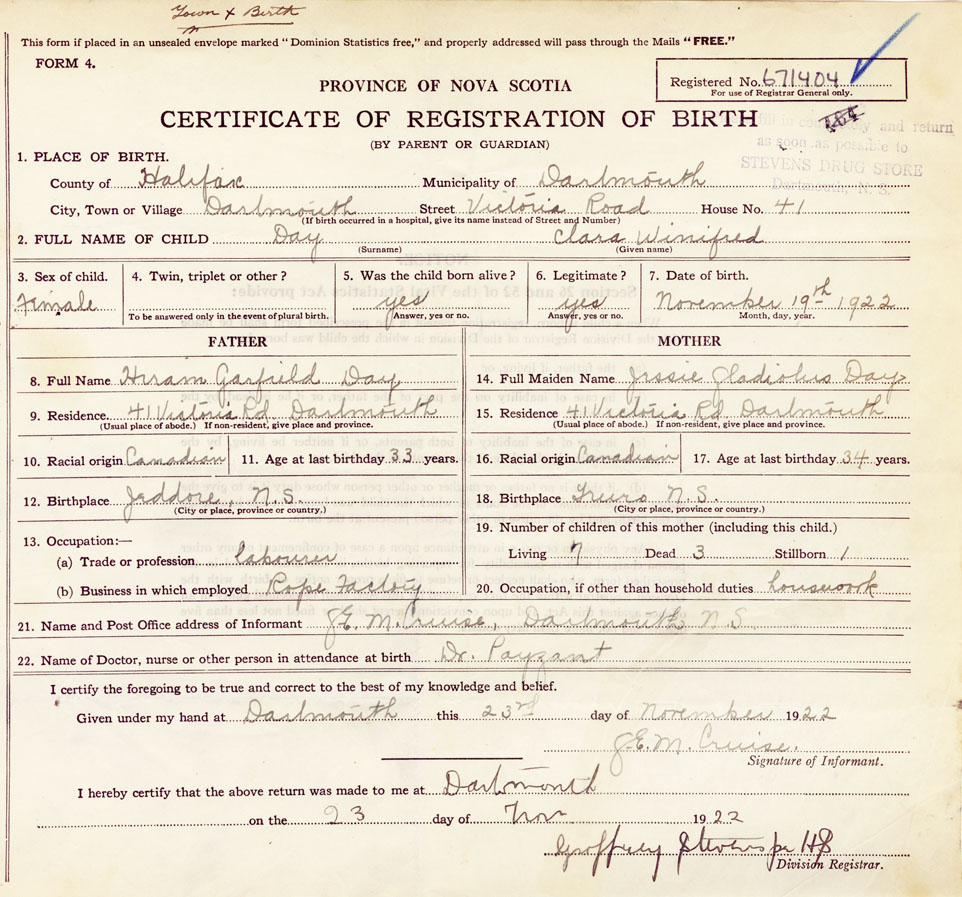 Town & Birth
This form if placed in an unsealed envelope marked "Dominion Statistics free," and properly addressed will pass through the Mails "FREE."
FORM 4.
Registered No. 671404
For use of Registrar General only.
PROVINCE OF NOVA SCOTIA
CERTIFICATE OF REGISTRATION OF BIRTH
(BY PARENT OR GUARDIAN)
and return
as soon as possible to
STEVENS DRUG STORE
Dartmouth, N. S.
1. PLACE OF BIRTH.
County of Halifax Municipality of Dartmouth
City, Town or Village Dartmouth Street Victoria Road House No. 41
(If birth occurred in a hospital, give its name instead of Street and Number)
2. FULL NAME OF CHILD Day Clara Winifred
(Surname) (Given name)
3. Sex of child. 4. Twin, triplet or other? 5. Was the child born alive? 6. Legitimate? 7. Date of birth.
Female yes yes November 19th 1922
To be answered only in the event of plural birth. Answer, yes or no. Answer, yes or no. Month, day, year.
FATHER MOTHER
8. Full Name Hiram Garfield Day
14. Full Maiden Name Jessie Gladiolus Day
9. Residence. 41 Victoria Rd Dartmouth
15. Residence 41 Victoria Rd Dartmouth
(Usual place of abode.) If non-resident, give place and province.
(Usual place of abode.) If non-resident, give place and province.
10. Racial origin Canadian 11. Age at last birthday 33 years.
16. Racial origin Canadian 17. Age at last birthday 34 years.
12. Birthplace Jeddore, N.S.
18. Birthplace Truro N.S.
(City or place, province or country.)
(City or place, province or country.)
13. Occupation:—
19. Number of children of this mother (including this child.)
(a) Trade or profession labourer
Living 7 Dead 3 Stillborn 1
(b) Business in which employed Rope Factory
20. Occupation, if other than household duties housework
21. Name and Post Office address of Informant J.E. M. Cruise, Dartmouth N S
22. Name of Doctor, nurse or other person in attendance at birth Dr. Payzant
I certify the foregoing to be true and correct to the best of my knowledge and belief.
Given under my hand at Dartmouth this 23rd day of November 1922
J.E. M. Cruise.
Signature of Informant.
I hereby certify that the above return was made to me at Dartmouth
on the 23 day of Nov 1922
Geoffrey Stevens per HS
Division Registrar.